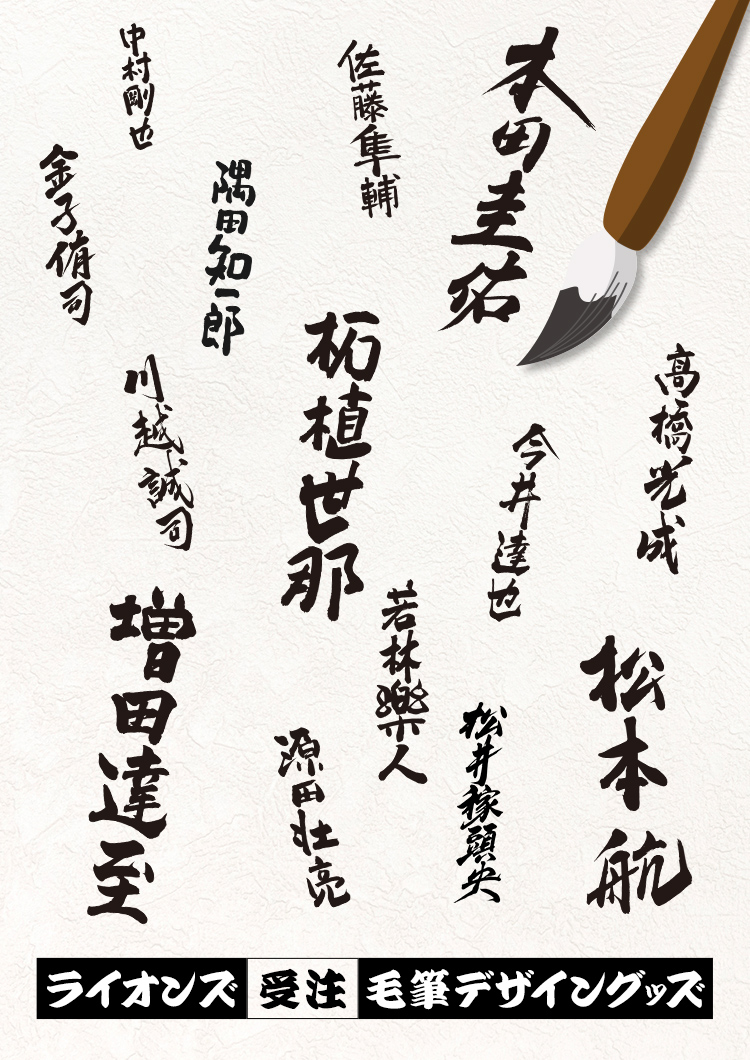 本田圭佑
佐藤隼輔
中村剛也
隅田知一郎
金子侑司
高橋光成
今井達也
柘植世那
川越誠司
松本航
松井稼頭央
若林樂人
源田壮亮
増田達至
ライオンズ 受注 毛筆デザイングッズ